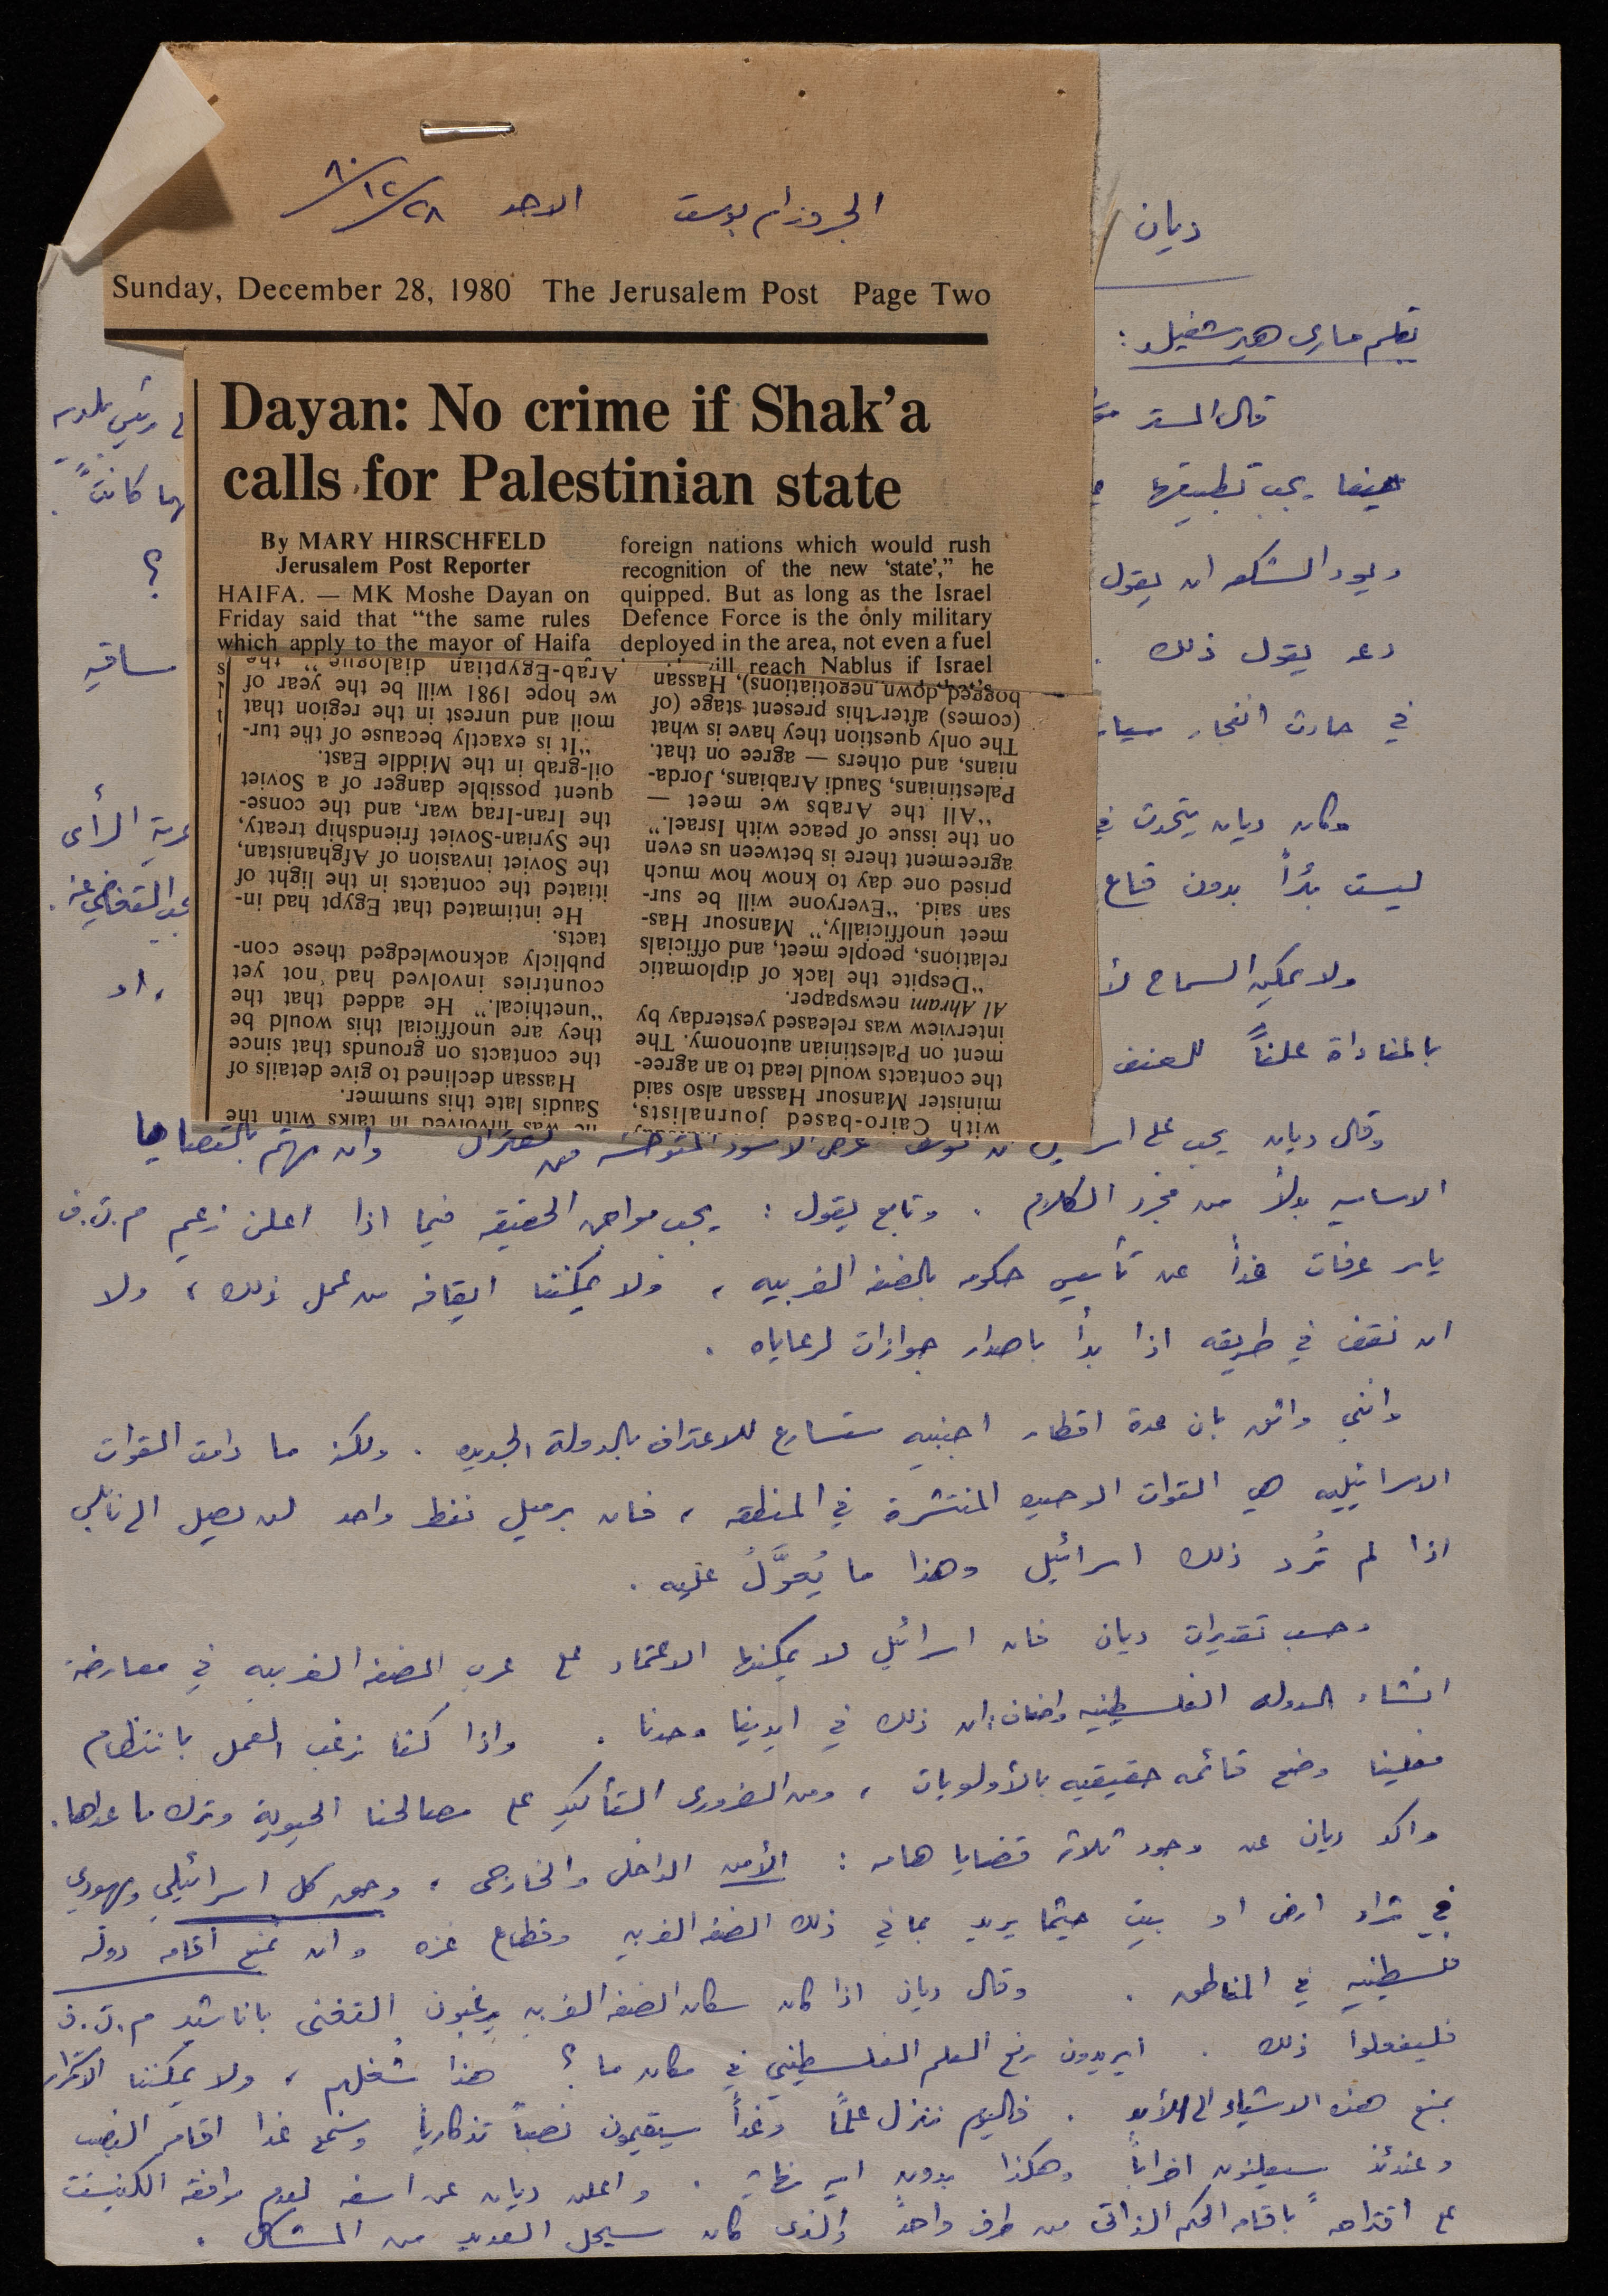 الجروزام بوست الاحد ٨٠/١٢/٢٨
Sunday, December 28, 1980 The Jerusalem Post Page Two
Dayan: No crime if Shak’a
calls for Palestinian state
By MARY HIRSCHFELD
Jerusalem Post Reporter
HAIFA. — MK Moshe Dayan on
Friday said that “the same rules
which apply to the mayor of Haifa
foreign nations which would rush
recognition of the new ‘state’,” he
quipped. But as long as the Israel
Defence Force is the only military
deployed in the area, not even a fuel
will reach Nablus if Israel
with Cairo-based journalists,
minister Mansour Hassan also said
the contacts would lead to an agree-
ment on Palestinian autonomy. The
interview was released yesterday by
Al Ahram newspaper.
“Despite the lack of diplomatic
relations, people meet, and officials
meet unofficially,” Mansour Has-
san said. “Everyone will be sur-
prised one day to know how much
agreement there is between us even
on the issue of peace with Israel.”
“All the Arabs we meet —
Palestinians, Saudi Arabians, Jorda-
nians, and others — agree on that.
The only question they have is what
(comes) after this present stage (of
bogged down negotiations), Hassan
he was involved in talks with the
Saudis late this summer.
Hassan declined to give details of
the contacts on grounds that since
they are unofficial this would be
“unethical.” He added that the
countries involved had not yet
publicly acknowledged these con-
tacts.
He intimated that Egypt had in-
itiated the contacts in the light of
the Soviet invasion of Afghanistan,
the Syrian-Soviet friendship treaty,
the Iran-Iraq war, and the conse-
quent possible danger of a Soviet
oil-grab in the Middle East.
“It is exactly because of the tur-
moil and unrest in the region that
we hope 1981 will be the year of
Arab-Egyptian dialogue,” the
ديان /
بقلم ماري هيرشفيلد :
قال المستر
حيفا يجب تطبيقها
رئيس بلدية
مهما كانت
ويود الشكعه ان يقول
؟
دعه يقول ذلك .
ساقيه
في حادث انفجار سيار
وكان ديان يتحدث في
حرية الرأى
ليست بدأً بدون قناع
يجب التغاضي عنه .
ولا يمكن السماح لأ
، او
بالمناداة علناً للعنف
وقال ديان يجب على اسر عرض الاسود المتوحشه وان نهتم بالقضايا
الاساسيه بدلاً من مجرد الكلام . وتابع يقول : يجب مواجهة الحقيقه فيما اذا اعلن زعيم م.ت.ف
ياسر عرفات غداً عن تأسيس حكومه بالضفه الغربيه ، ولا يمكننا ايقافه من عمل ذلك ، ولا
ان نقف في طريقه اذا بدأ باصدار جوازات لرعاياه .
وانني واثق بان عدة اقطار اجنبيه ستسارع للاعتراف بالدولة الجديده . ولكن ما دامت القوات
الاسرائيليه هي القوات الوحيده المنتشرة في المنطقه ، فان برميل نفط واحد لن يصل الى نابلس
اذا لم تُرد ذلك اسرائيل وهذا ما يُعوَّلُ عليه .
وحسب تقديرات ديان فان اسرائيل لا يمكنها الاعتماد على عرب الضفه الغربيه في معارضة
انشاء الدوله الفلسطينيه واضاف : ان ذلك في ايدينا وحدنا . واذا كنا نرغب العمل بانتظام
فعلينا وضع قائمه حقيقيه بالأولويات ، ومن الضرورى التأكيد على مصالحنا الحيوية وترك ما عداها .
واكد ديان عن وجود ثلاثة قضايا هامه : الأمن الداخلى والخارجى ، وحق كل اسرائيلي ويهودي
في شراء ارض او بيت حيثما يريد بما في ذلك الضفه الغربيه وقطاع غزه وان نمنع اقامه دولة
فلسطينيه في المناطق . وقال ديان اذا كان سكان الضفه الغربيه يرغبون التغنى باناشيد م.ت.ف
فليفعلوا ذلك . ايريدون رفع العلم الفلسطيني في مكان ما ؟ هذا شغلهم ، ولا يمكننا الاستمرار
بمنع هذه الاشياء الى الأبد . فاليوم ننزل علماً وغداً سيقيمون نصباً تذكارياً وسنمنع غدا اقامه النصب
وعندئذ سيعلنون اضراباً وهكذا بدون ايه نهاية . واعلن ديان عن اسفه لعدم موافقه الكنيست
على اقتراحه باقامه الحكم الذاتى من طرف واحد والذى كان سيحل العديد من المشاكل .